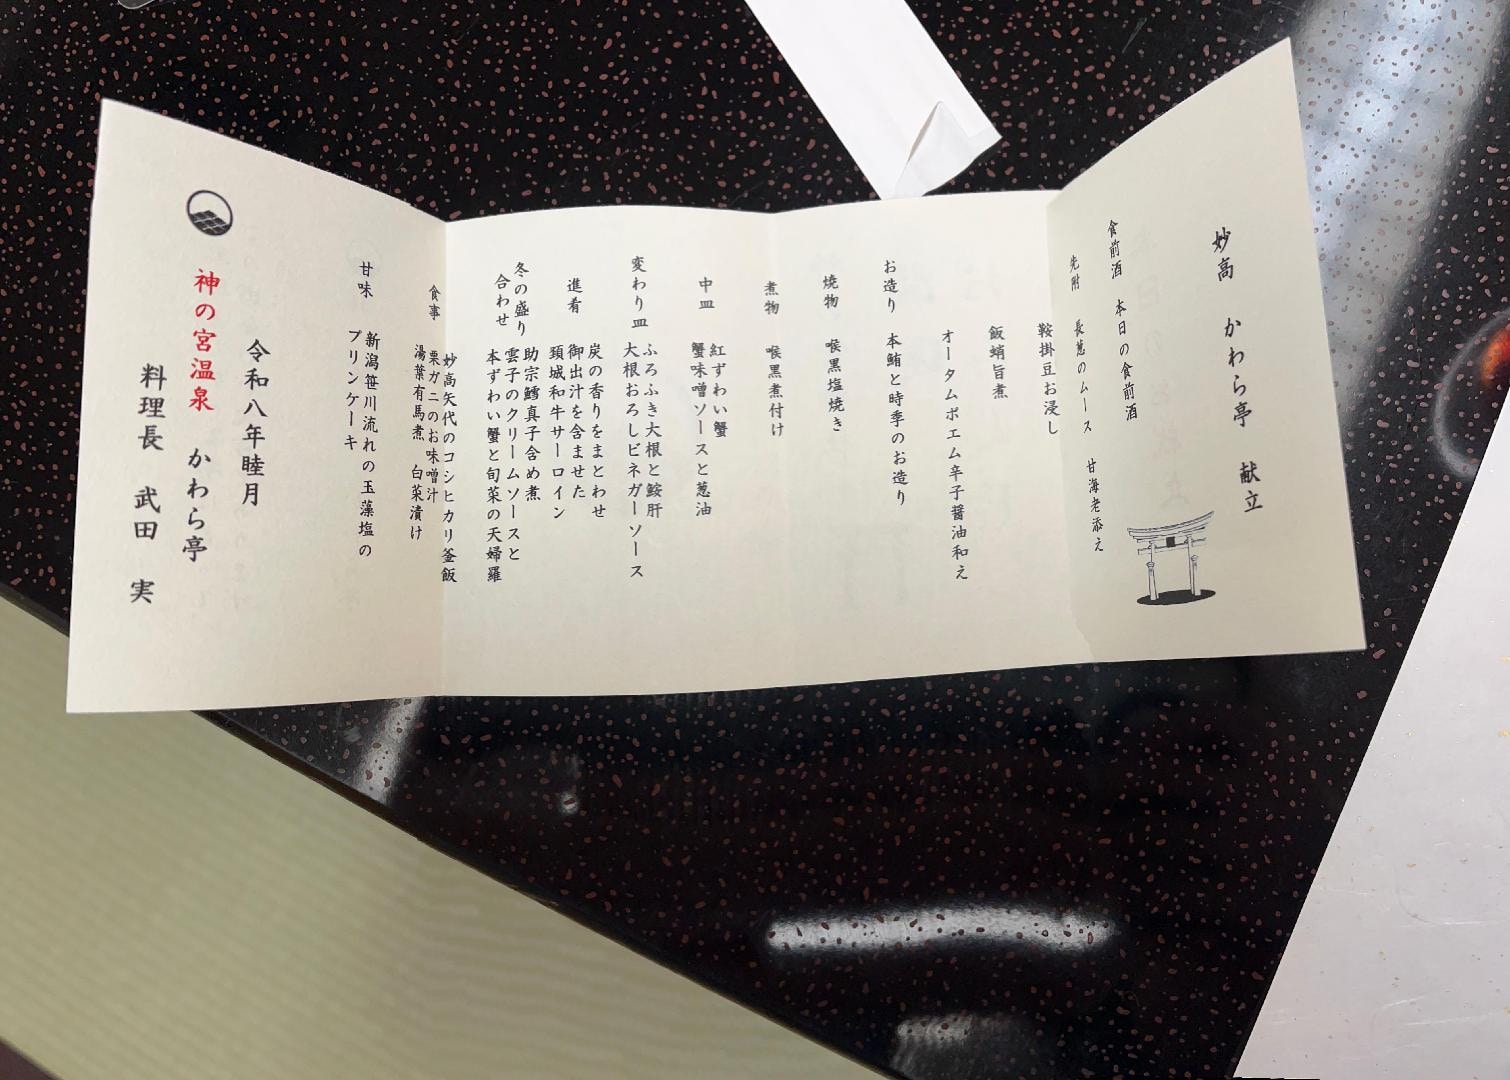 妙高 かわら亭 献立
食前酒 本日の食前酒
先附 長葱のムース 甘海老添え
鞍掛豆お浸し
飯蛸旨煮
オータムポエム辛子醤油和え
お造り 本鮪と時季のお造り
焼物 喉黒塩焼き
煮物 喉黒煮付け
中皿 紅ずわい蟹
蟹味噌ソースと葱油
変わり皿 ふろふき大根と鮟肝
大根おろしビネガーソース
進肴 炭の香りをまとわせ
御出汁を含ませた
頚城和牛サーロイン
冬の盛り合わせ 助宗鱈真子含め煮
雲子のクリームソースと
本ずわい蟹と旬菜の天婦羅
食事 妙高矢代のコシヒカリ釜飯
栗ガニのお味噌汁
湯葉有馬煮 白菜漬け
甘味 新潟笹川流れの玉藻塩の
プリンケーキ
令和八年睦月
神の宮温泉 かわら亭
料理長 武田 実